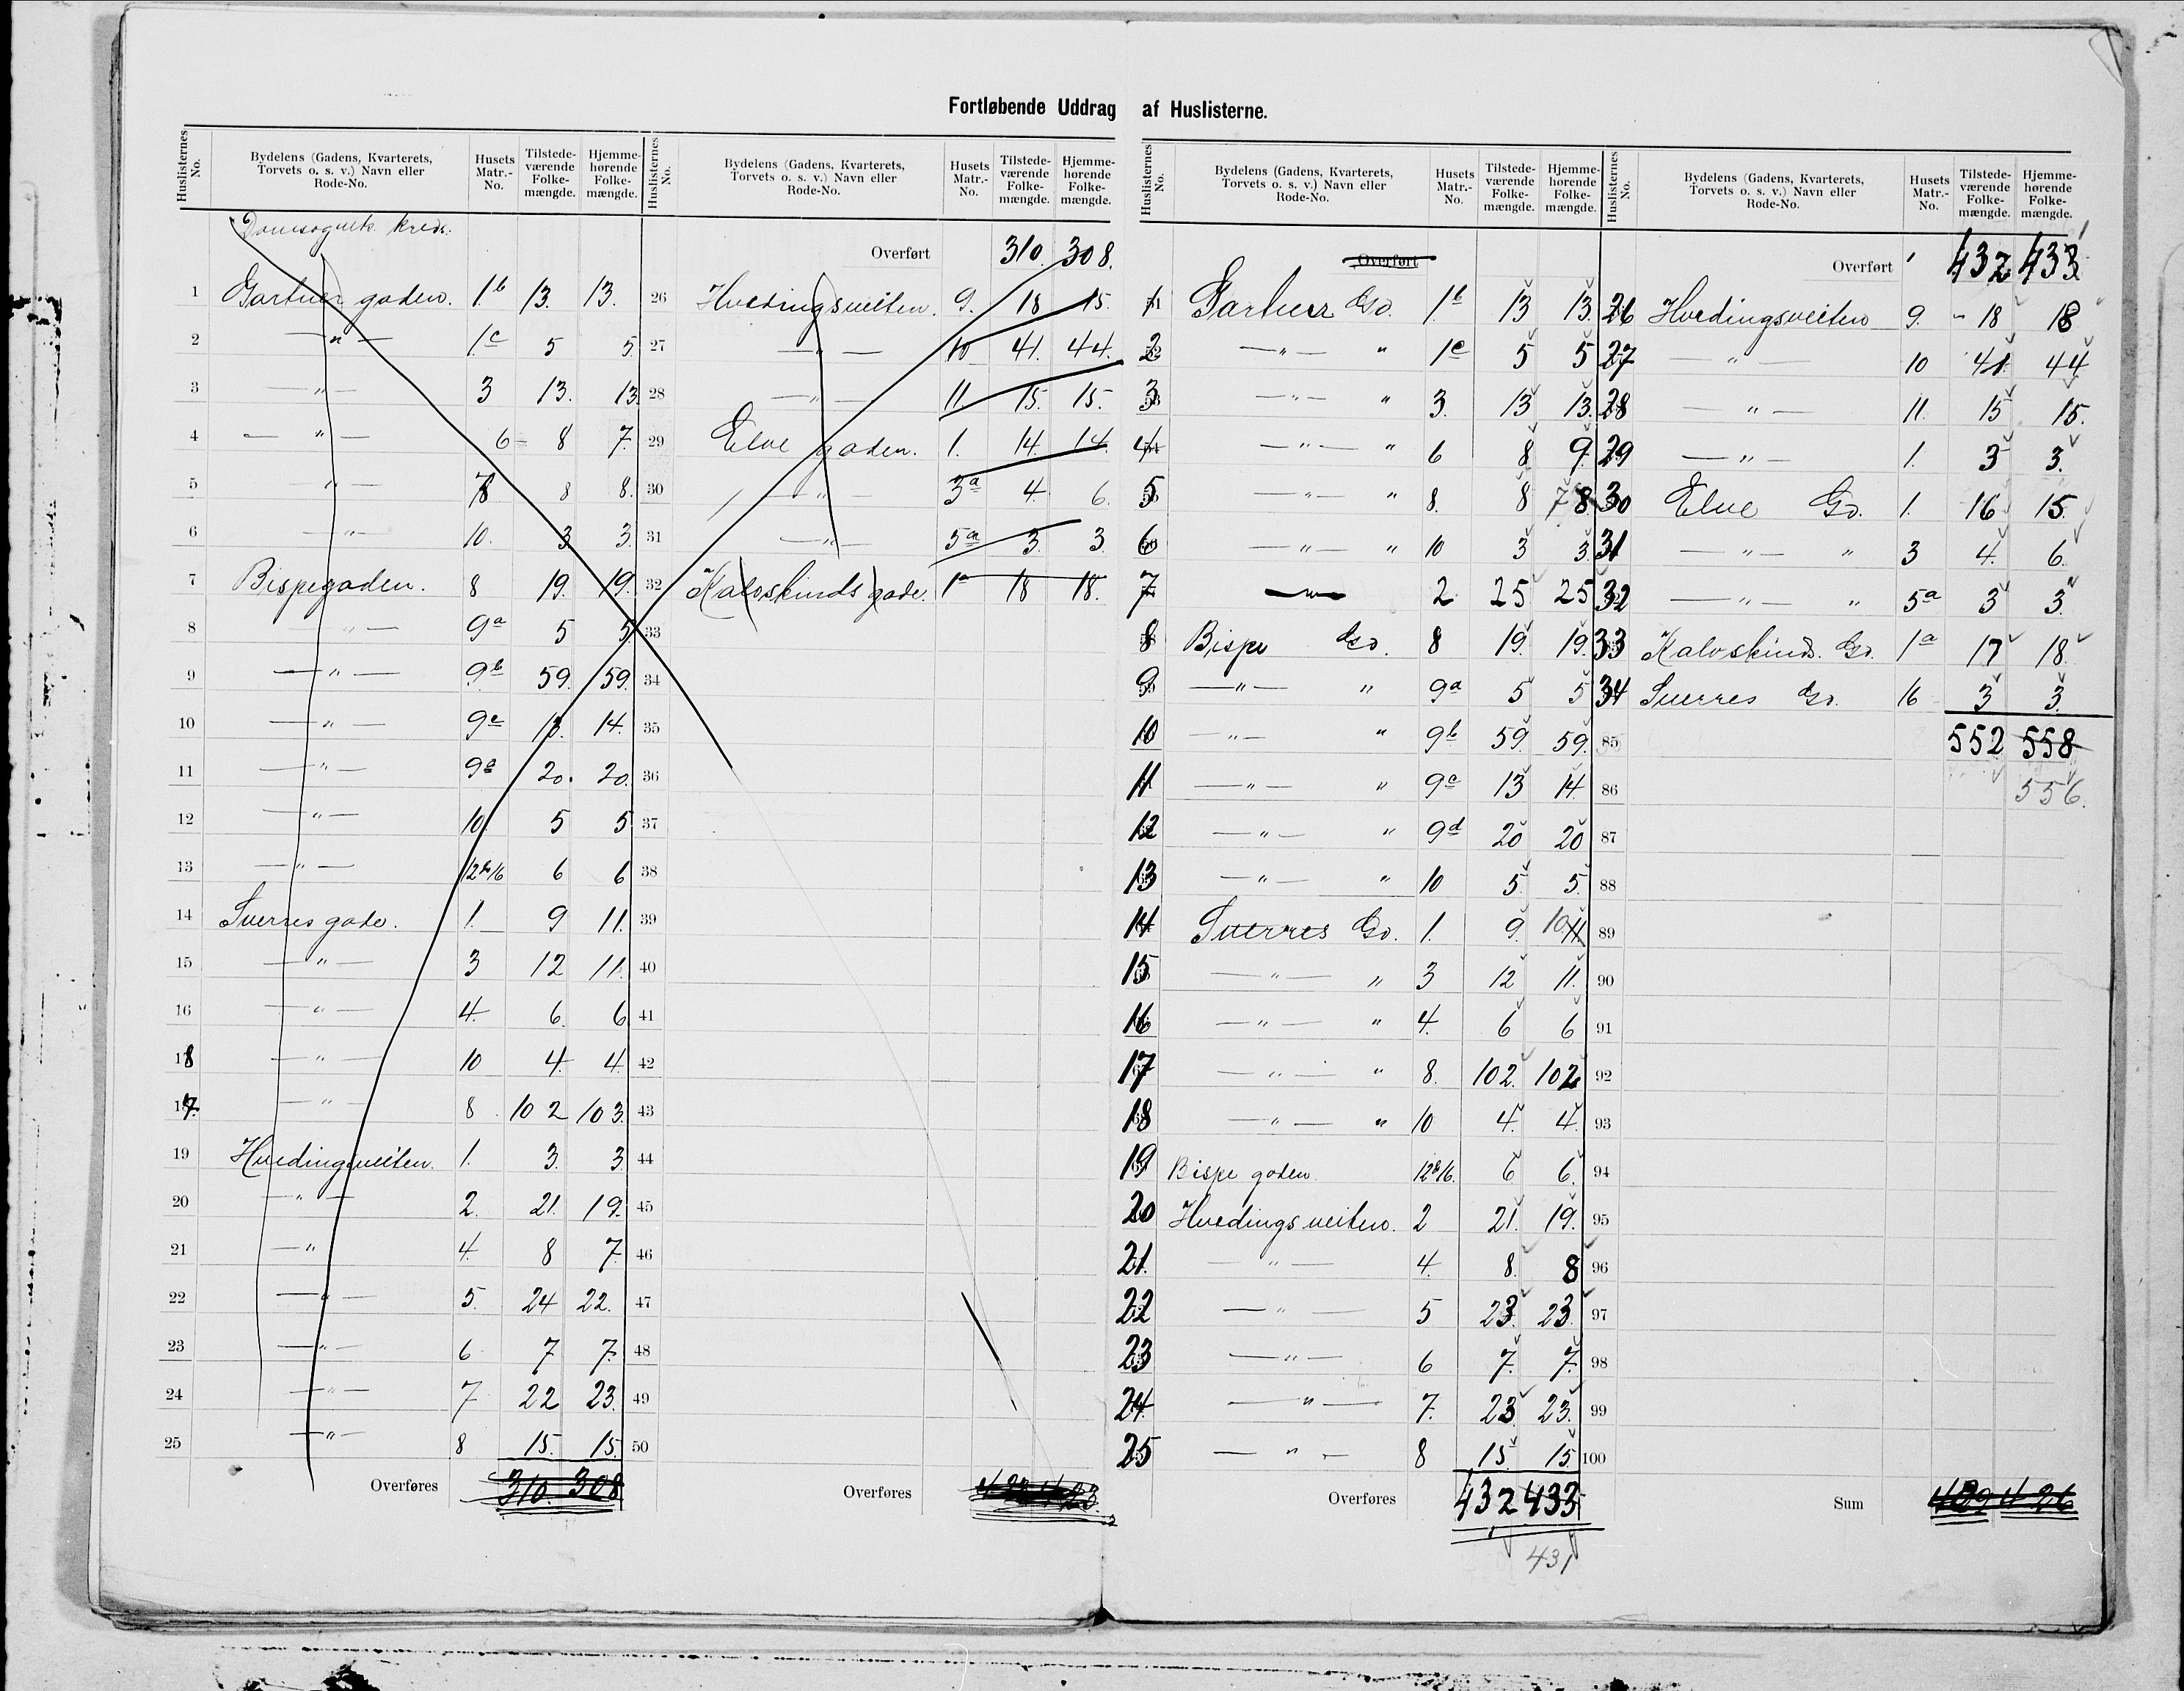 Fortløbende Uddrag af Huslisterne.
Huslisternes No. Bydelens (Gadens, Kvarterets, Torvets o. s. v.) Navn eller Rode-No. Husets Matr.-No. Tilstedeværende Folkemængde. Hjemmehørende Folkemængde.
Domsognets kreds.
1 Gartner gaden. 1b 13. 13.
2 — " — 1c 5 5
3 — " — 3 13. 13
4 — " — 6 8 7.
5 — " — 8 8 8.
6 — " — 10. 3 3.
7 Bispegaden. 8 19. 19.
8 — " — 9a 5 5
9 — " — 9b 59. 59
10 — " — 9c 13. 14.
11 — " — 9d 20. 20.
12 — " — 10. 5 5
13 — " — 12b/16 6 6
14 Sverres gade. 1. 9 11.
15 — " — 3 12 11.
16 — " — 4. 6. 6
18 — " — 10 4 4
17. — " — 8. 102 103
19 Hvedingsveiten. 1. 3. 3
20 — " — 2. 21. 19.
21 — " 4. 8 7.
22 — " — 5. 24 22.
23 — " — 6 7 7.
24 — " — 7 22 23.
25 — " — 8 15. 15.
Overføres 310. 308
Huslisternes No. Bydelens (Gadens, Kvarterets, Torvets o. s. v.) Navn eller Rode-No. Husets Matr.-No. Tilstedeværende Folkemængde. Hjemmehørende Folkemængde.
Overført 310. 308.
26 Hvedingsveiten. 9. 18 15.
27 — " — 10 41. 44.
28 — " — 11. 15. 15.
29 Elve gaden. 1. 14. 14.
30 — " — 3a 4. 6.
31 — " — 5a 3. 3
32 Kalvskinds gade. 1a 18 18.
33
34
35
36
37
38
39
40
41
42
43
44
45
46
47
48
49
50
Overføres
Huslisternes No. Bydelens (Gadens, Kvarterets, Torvets o. s. v.) Navn eller Rode-No. Husets Matr.-No. Tilstedeværende Folkemængde. Hjemmehørende Folkemængde.
Overført
1 Gartner Gd. 1b 13 13.
2 — " — " 1c 5 5
3 — " — " 3. 13 13.
4 — " — " 6 8 9.
5 — " — " 8. 8 7 8
6 — " — " 10 3 3.
7 — " — 2 25 25
8 Bispe Gd. 8 19. 19.
9 — " — " 9a 5 5
10 — " — " 9b 59. 59.
11 — " — " 9c 13 14.
12 — " — " 9d 20 20
13 — " — " 10 5. 5.
14 Sverres Gd. 1. 9. 10 11.
15 — " — " 3 12 11.
16 — " — " 4. 6 6
17 — " — " 8. 102. 102
18 — " — " 10 4. 4.
19 Bispe gaden. 12b/16. 6 6.
20 Hvedingsveiten. 2 21. 19.
21. — " — 4. 8. 8
22 — " — 5 23. 23.
23 — " — 6 7. 7.
24 — " — 7. 23 23.
25 — " — 8 15. 15.
Overføres 432 433
431
Huslisternes No. Bydelens (Gadens, Kvarterets, Torvets o. s. v.) Navn eller Rode-No. Husets Matr.-No. Tilstedeværende Folkemængde. Hjemmehørende Folkemængde.
Overført 432 433
26 Hvedingsveiten 9. 18 18
27 — " — 10 41 44
28 — " — 11. 15 15.
29 — " — 1. 3 3.
30 Elve Gd. 1. 16 15.
31 — " — " 3 4. 6.
32 — " — " 5a 3 3.
33 Kalvskinds. Gd. 1a 17 18.
34 Sverres Gd. 16 3 3.
85 552 558
86 556.
87
88
89
90
91
92
93
94
95
96
97
98
99
100
Sum 429 426